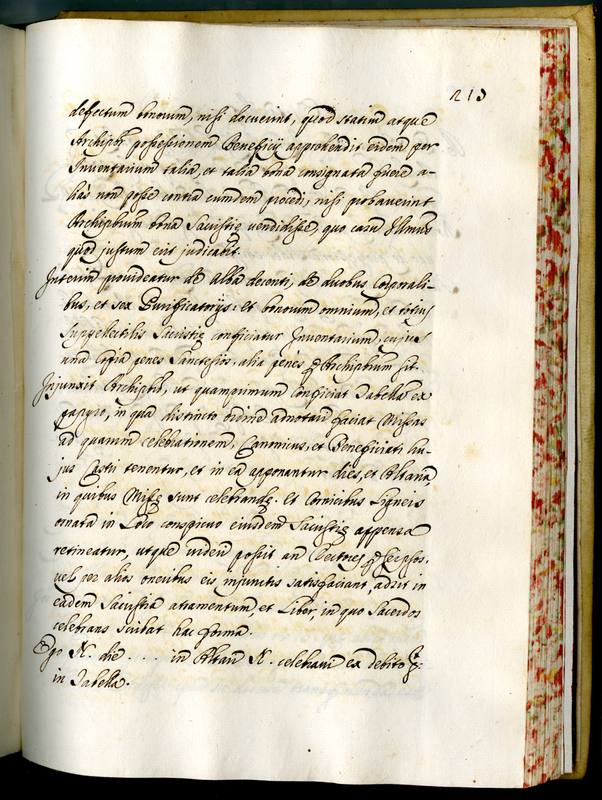 213
defectum bonorum, nisi docuerint, quod statim atque
Archipbr possessionem Beneficij apprehendit eidem per
Inventarium talia, et talia bona consignata fuere a-
liàs non posse contra eumdem procedi, nisi probaverint
Archipbrum bona Sacristię vendidisse, quo casu Illmus
quod justum erit judicabit.
Interim provideatur de Alba decenti, de duobus Corporali-
bus, et sex Purificatorijs: et bonorum omnium, et totius
suppellectilis Sacristię conficiatur Inventarium, cujus
una Copia penes Sanctesios, alia penès Archipbrum sit.
Injunxit Archipbro, ut quamprimum conficiat Tabella ex
papyro, in qua distincto ordine adnotari faciat Missas
ad quarum celebrationem, Canonicus, et Beneficiati hu-
jus Castri tenentur, et in ea apponantur dies, et Altaria
in quibus Missę sunt celebrandę. Et Cornicibus Ligneis
ornata in Loco conspicuo eiusdem Sacristię appensa
retineatur, utque videri possit an Rectores per seipsos,
vel per alios oneribus eis injunctis satisfaciant, adsit in
eadem Sacristia atramentum et Liber, in quo Sacerdos
celebrans scribat hac forma.
Ego N. die . . . . in Altari N. celebravi ex debito
in Tabella.